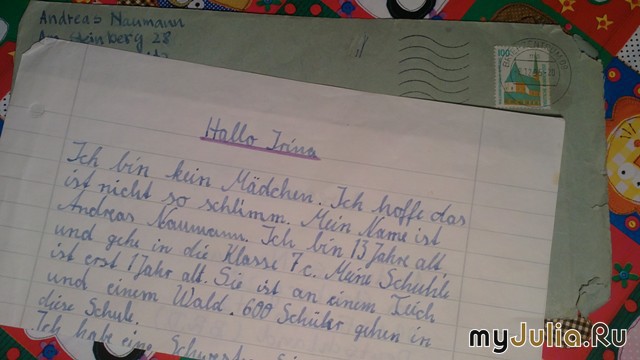 Andreas Naumann
Am Steinberg 28
100
Hallo Irina
Ich bin kein Mädchen. Ich hoffe das
ist nicht so schlimm. Mein Name ist
Andreas Naumann. Ich bin 13 Jahre alt
und gehe in die Klasse 7c. Meine Schuhle
ist erst 1 Jahr alt. Sie ist an einem Teich
und einem Wald. 600 Schüler gehen in
diese Schule.
Ich habe eine
myJulia.Ru